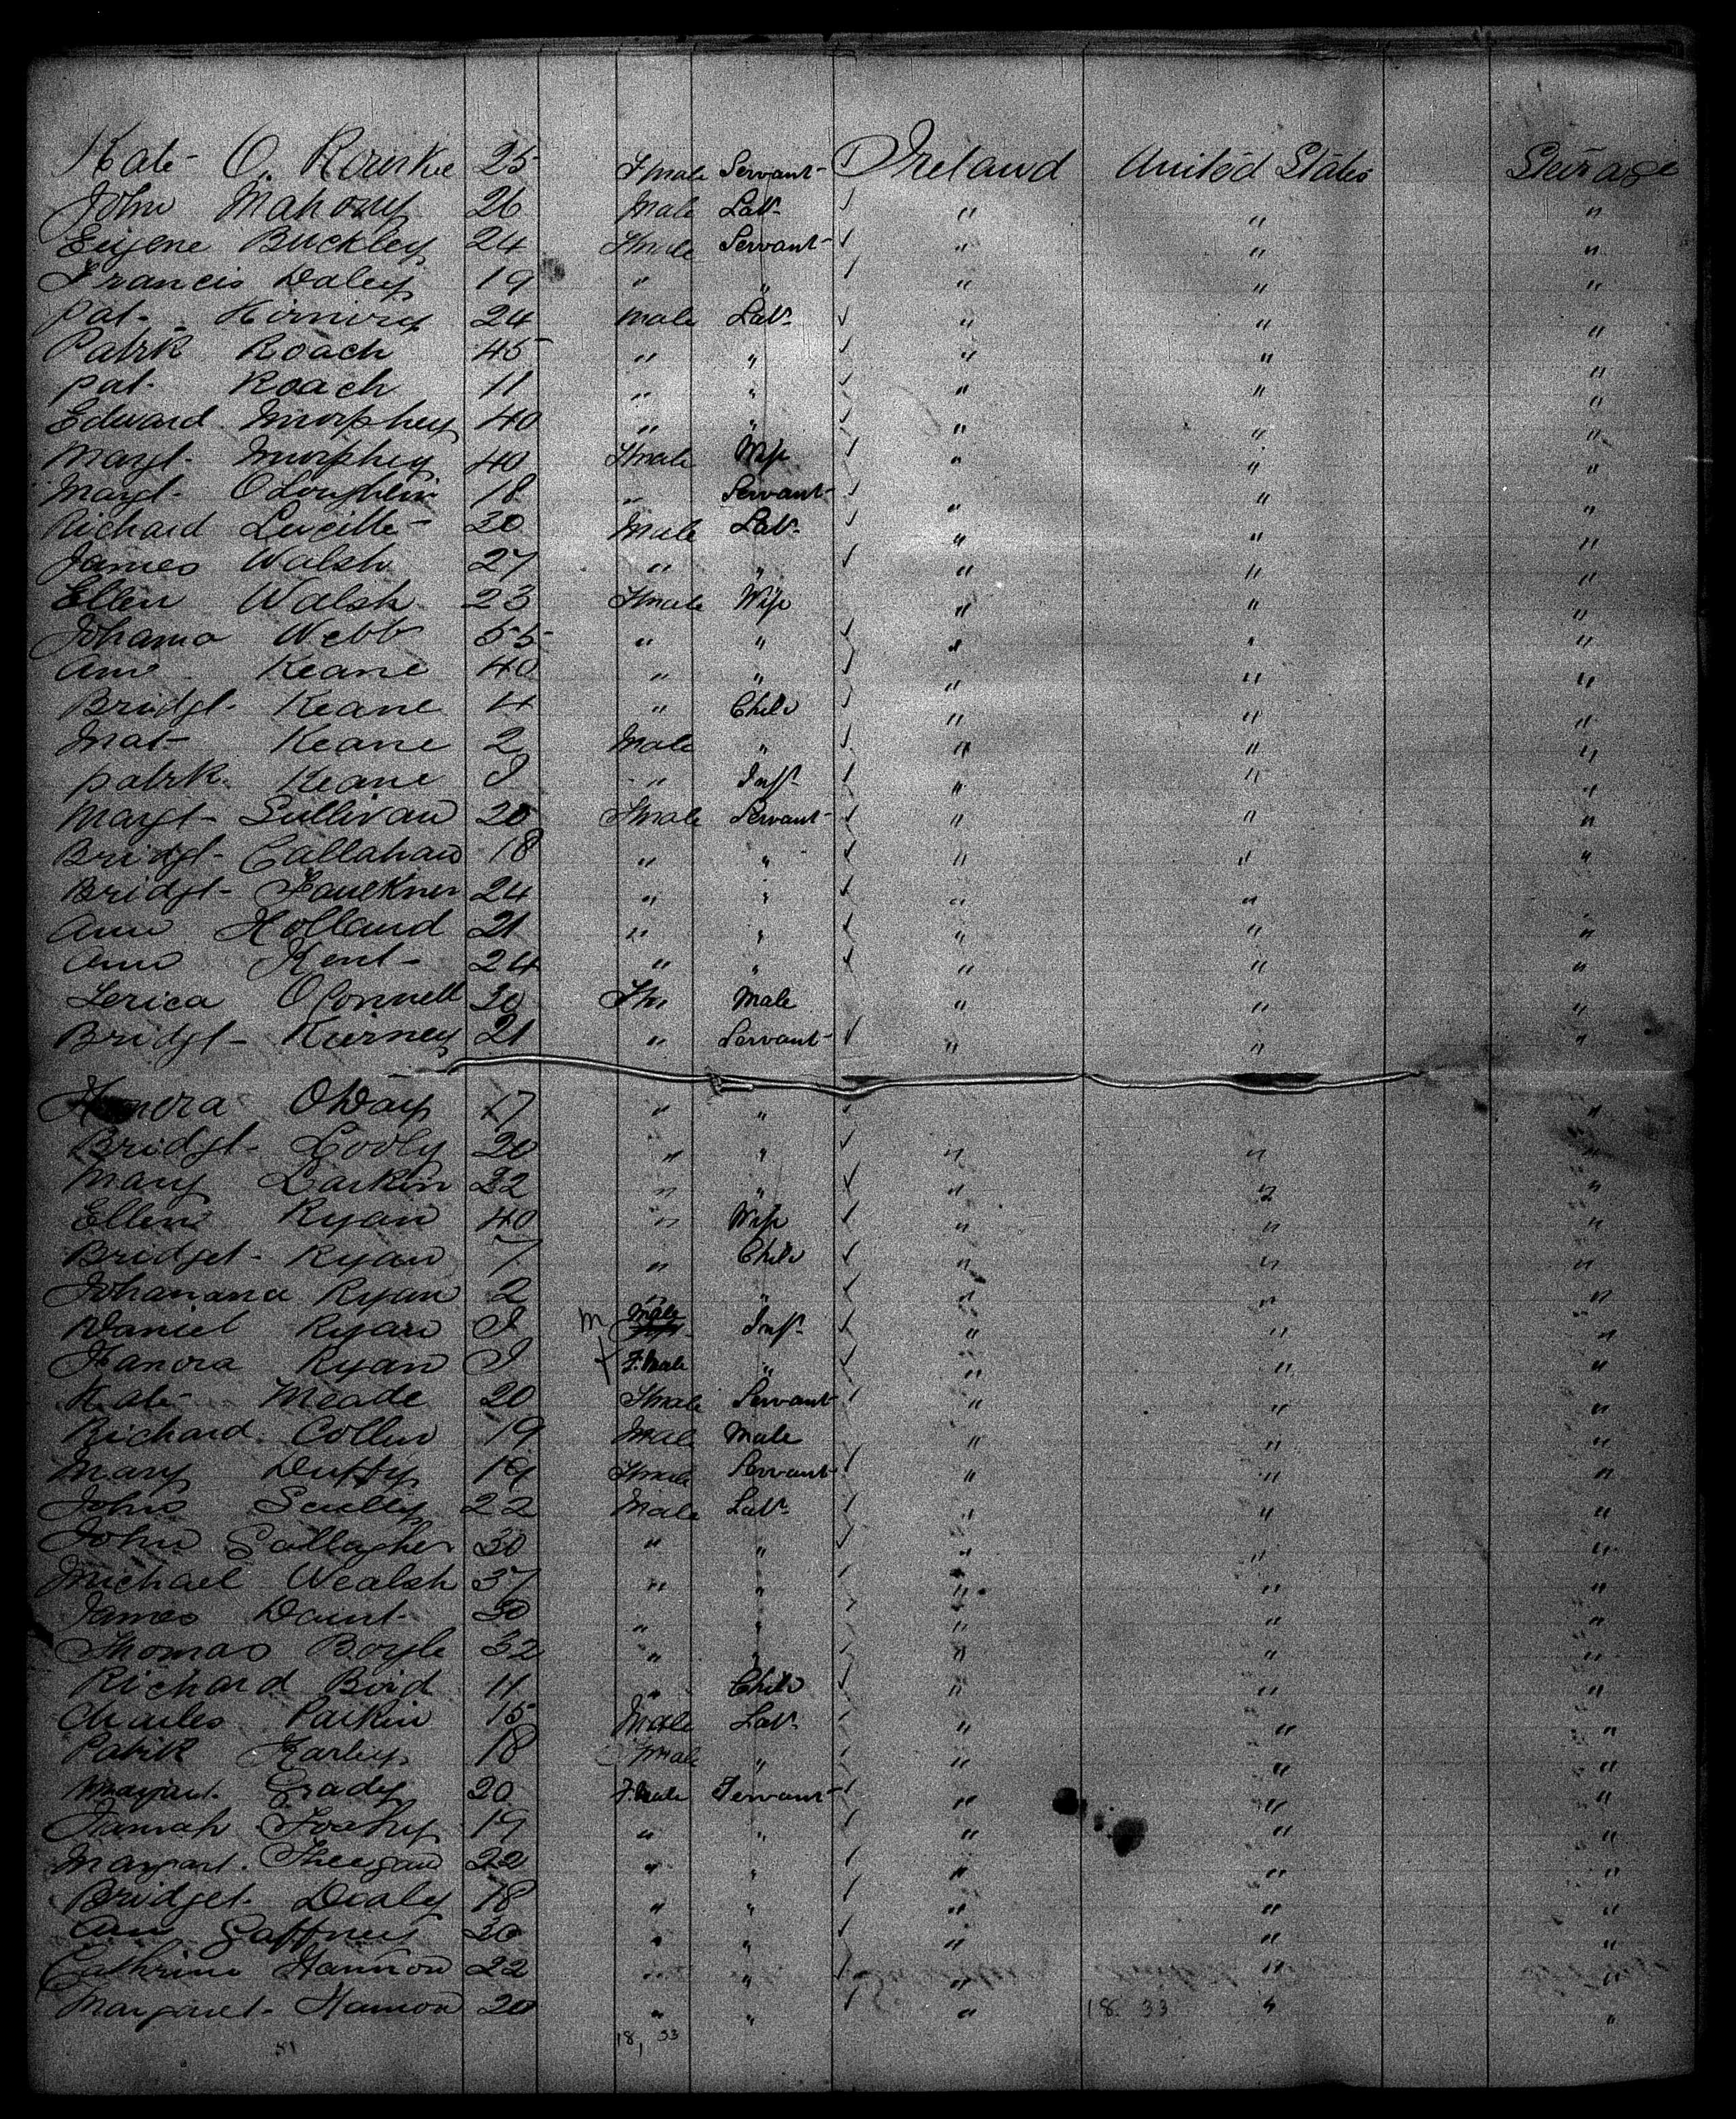 Kate O. Rourke 25 Fmale Servant Ireland United States Steirage
John Mahony 26 Male Lab. " " "
Eugene Buckley 24 Fmale Servant " " "
Francis Daley 19 " " " " "
Pat. 24 Male Lab. " " "
Patrk Roach 45 " " " " "
Pat. Roach 11 " " " " "
Edward Murphey 40 " " " " "
Margt. Murphey 40 Fmale Wife " " "
Margt. OLoughlin 18 " Servant " " "
Richard 30 Male Lab. " " "
James Walsh 27 " " " " "
Ellen Walsh 23 Fmale Wife " " "
Johana Webb 55 " " " " "
Ann Keane 40 " " " " "
Bridgt. Keane 4 " Child " " "
Mat Keane 2 Male " " " "
Patrk. Keane I " Inft. " " "
Margt. Sullivan 20 Fmale Servant " " "
Bridgt. Callahan 18 " " " " "
Bridgt. Faulkner 24 " " " " "
Ann Holland 21 " " " " "
Ann Kent 24 " " " " "
OConnell 30 Fm Male " " "
Bridgt. Kierney 21 " Servant " " "
Honora ODay 17 " " "
Bridgt. 20 " " " " "
Mary Larkin 22 " " " " "
Ellen Ryan 40 " Wife " " "
Bridget Ryan 7 " Child " " "
Johanana Ryan 2 " " " " "
Daniel Ryan I M Male Inft. " " "
Hanora Ryan I F.Male " " " "
Kate Meade 20 Fmale Servant " " "
Richard Collen 19 Male Male " " "
Mary Duffy 19 Fmale Servant " " "
John Scully 22 Male Lab. " " "
John Gallagher 30 " " " " "
Michael Wealsh 37 " " " " "
James Daunt 30 " " " " "
Thomas Boyle 32 " " " " "
Richard Bird 11 " Child " " "
Charles Parkin 15 Male Lab. " " "
Patrik Harley 18 Male " " " "
Margaret Grady 20 F.Male Servant " " "
Hannah 19 " " " " "
Margart. 22 " " " " "
Bridget. Dealy 18 " " " " "
Ann Gaffney 30 " " " " "
Cathrine Hannon 22 " " " " "
Margaret Hannon 20 " " " 18 33 " "
51 18, 33